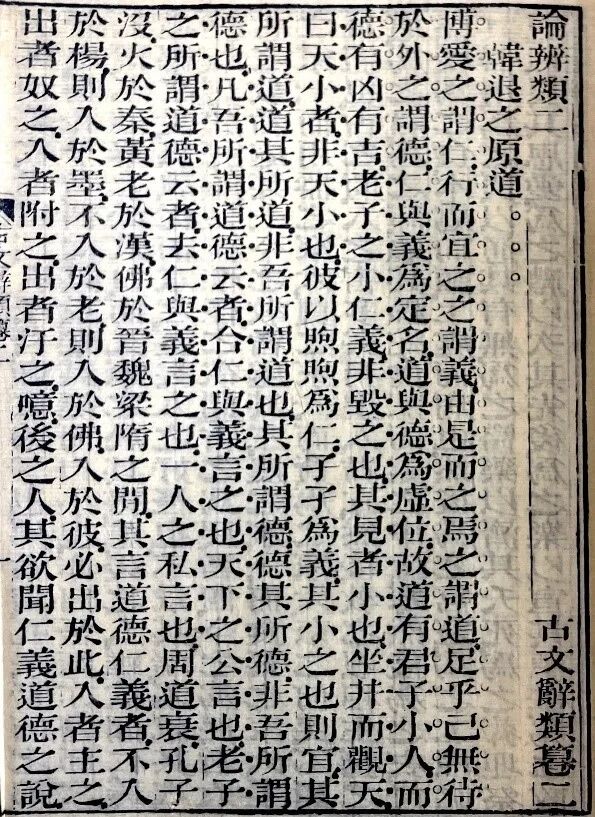 論辨類二　古文辭類纂二
韓退之原道
博愛之謂仁行而宜之之謂義由是而之焉之謂道足乎己無待
於外之謂德仁與義爲定名道與德爲虛位故道有君子小人而
德有凶有吉老子之小仁義非毀之也其見者小也坐井而觀天
曰天小者非天小也彼以煦煦爲仁孑孑爲義其小之也則宜其
所謂道道其所道非吾所謂道也其所謂德德其所德非吾所謂
德也凡吾所謂道德云者合仁與義言之也天下之公言也老子
之所謂道德云者去仁與義言之也一人之私言也周道衰孔子
沒火於秦黃老於漢佛於晉魏梁隋之閒其言道德仁義者不入
於楊則入於墨不入於老則入於佛入於彼必出於此入者主之
出者奴之入者附之出者汙之噫後之人其欲聞仁義道德之說